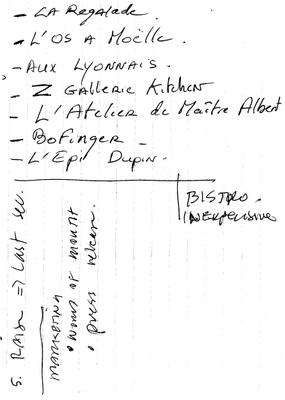 - LA Regalade.
- L'OS A Moëlle.
- AUX LYONNAIS.
- Z Gallerie Kitchen
- L'Atelier de Maître Albert
- Bofinger -
- L'Epi Dupin.
BISTRO.
INEXPENSIVE
S. RAISE => last sec.
marketing
• word of mouth
• press release.